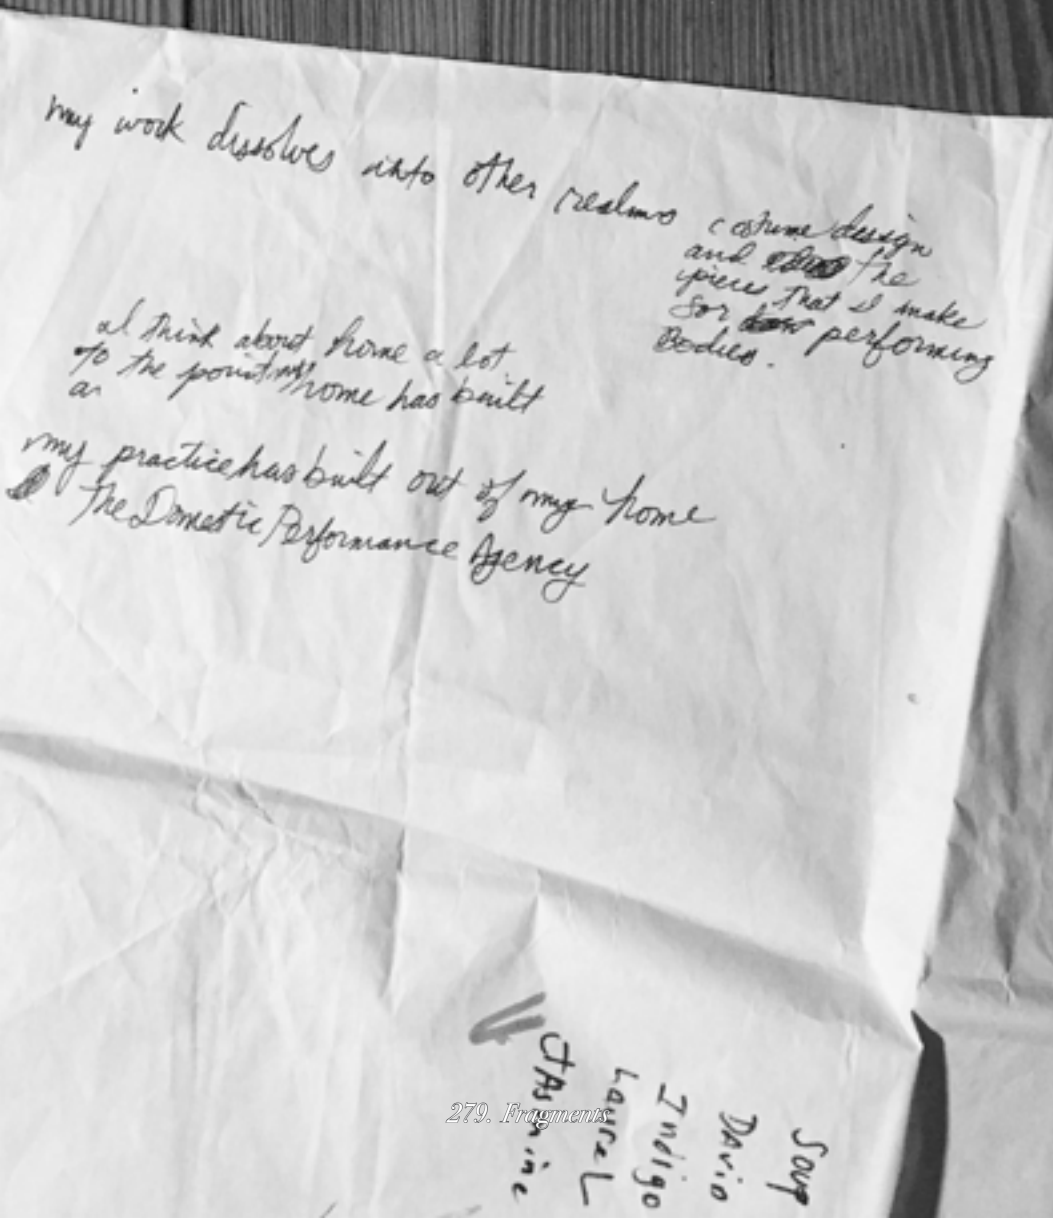 my work dissolves into other realms
costume design
and the
pieces that I make
for performing
Bodies.
I think about home a lot
to the point my home has built
a
my practice has built out of my home
The Domestic Performance Agency
Soup
David
Indigo
Laurel
Jasmine
279. Fragments